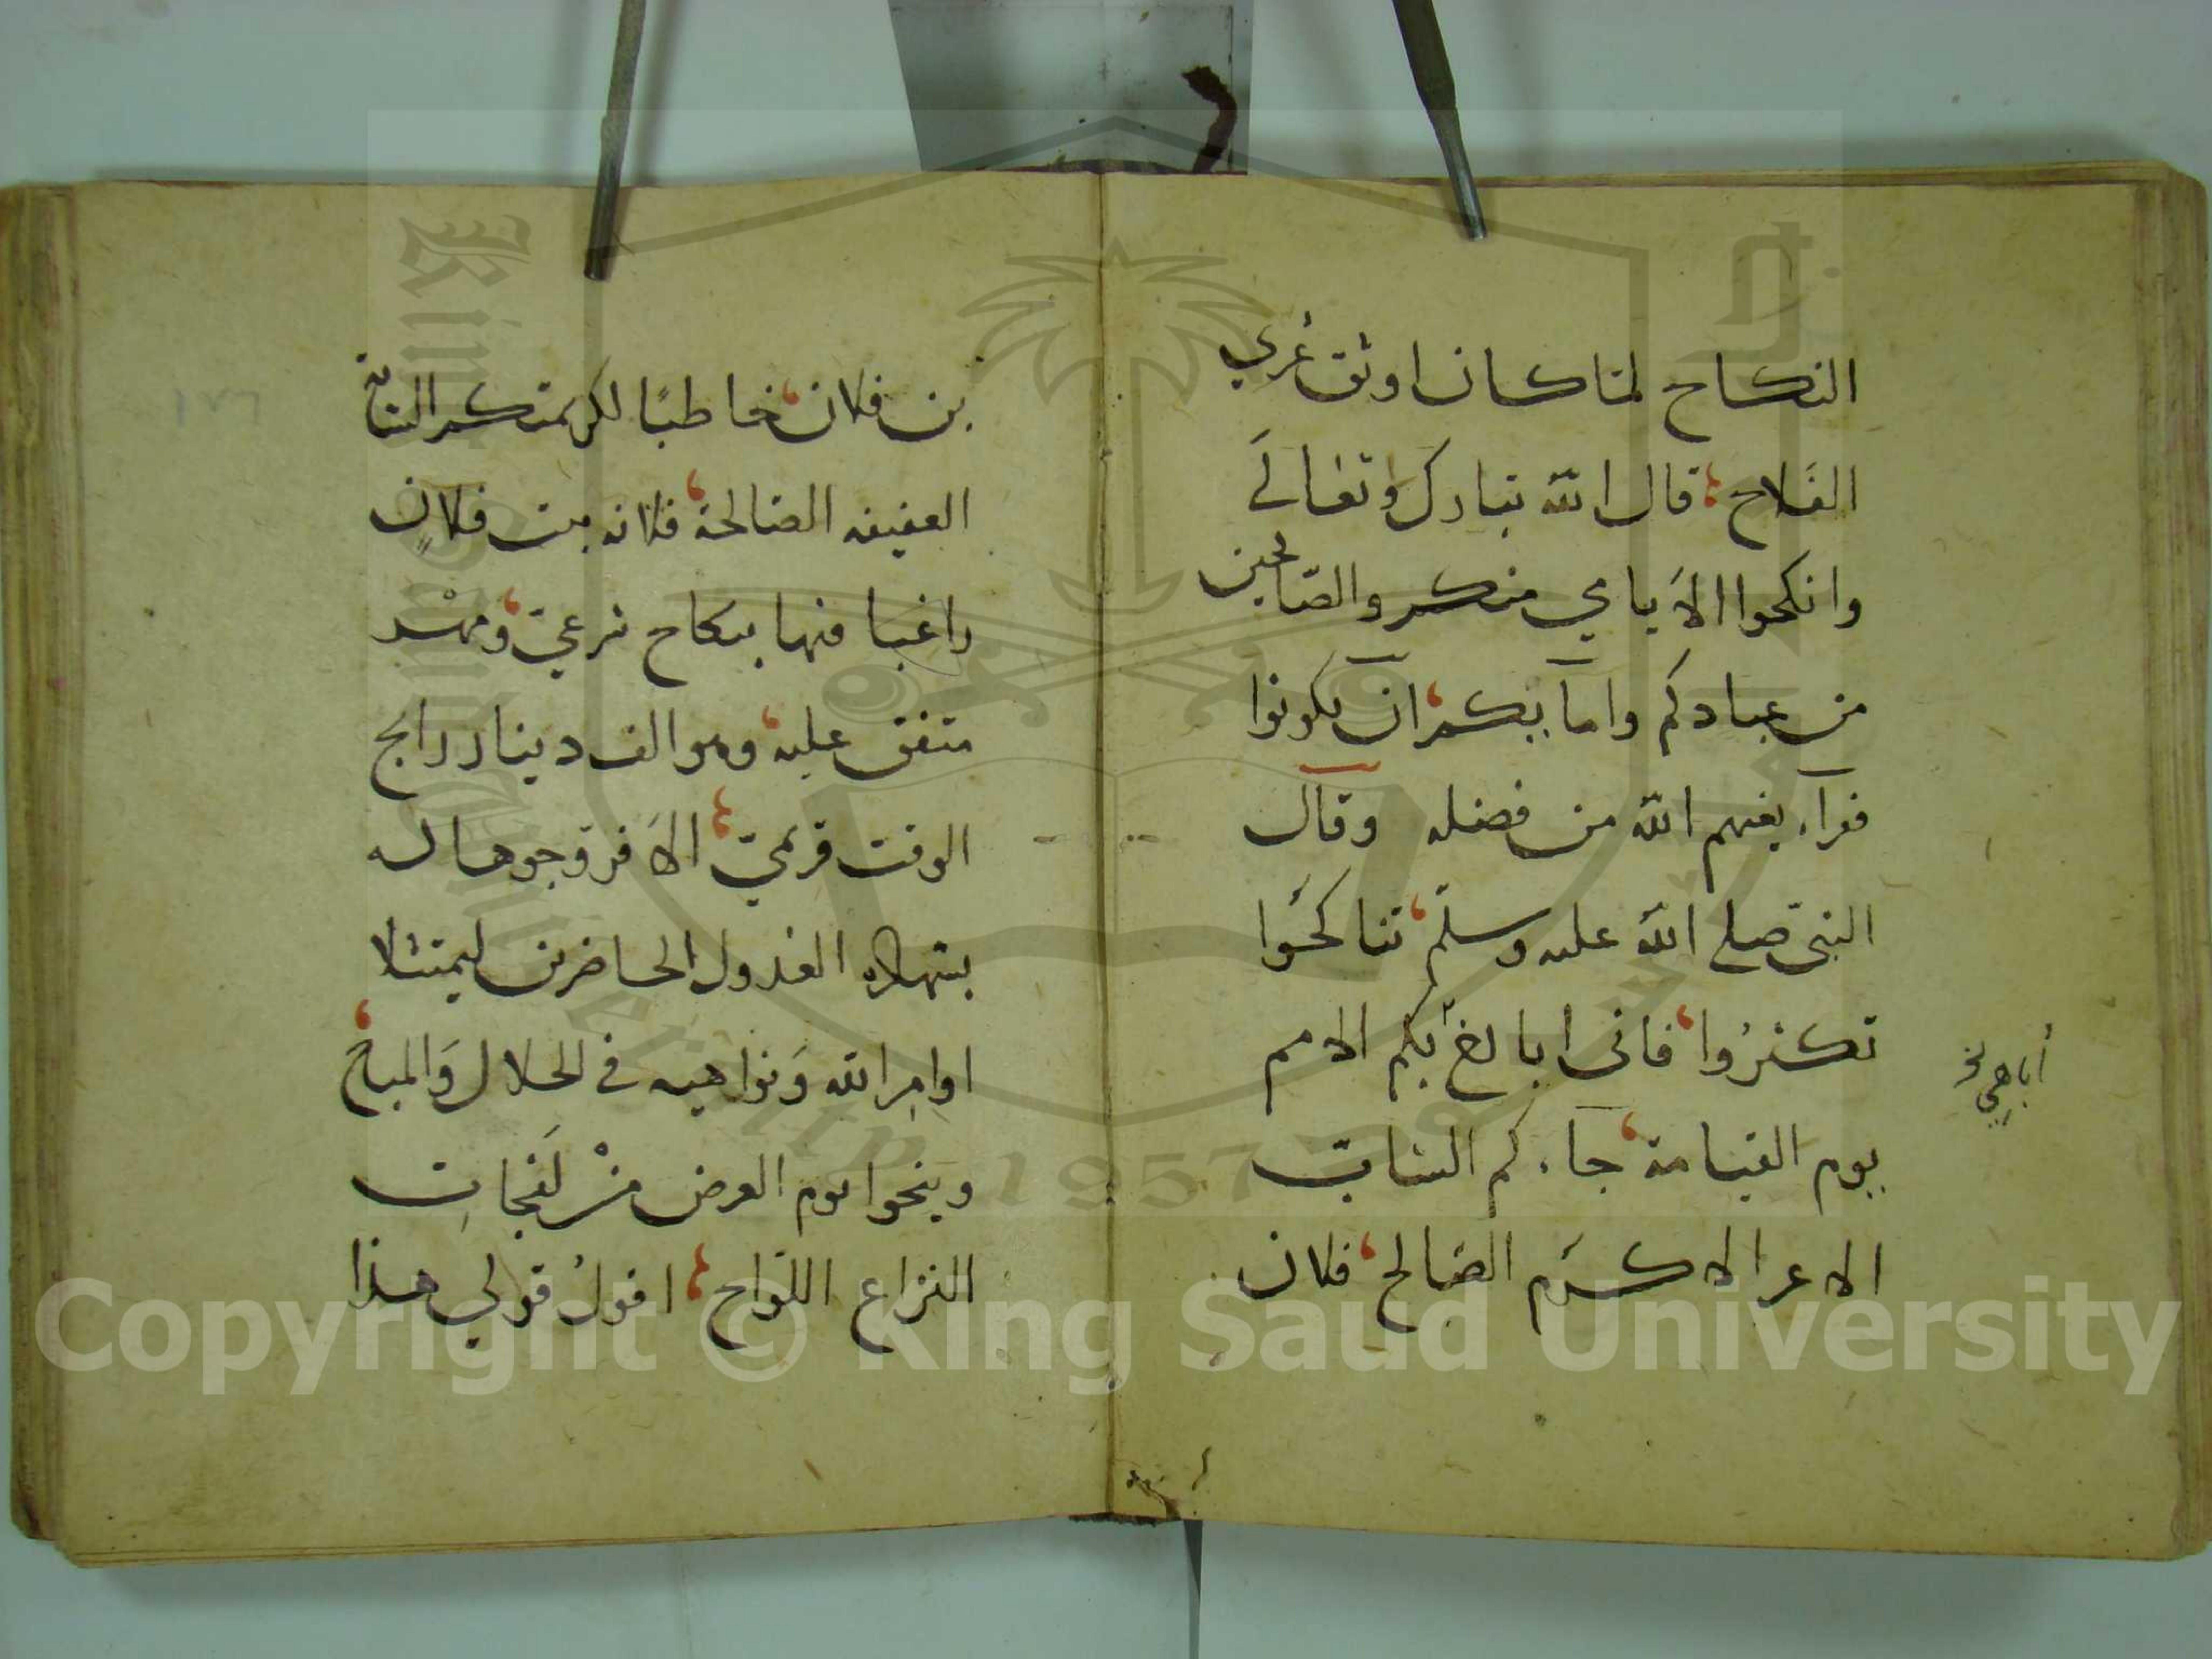 النكاح لمّا كان اوثق عُرى
الفَلاح؛ قال الله تبارك وتعَالَى
وانكحوا الاَيامي منكم والصّالحين
من عبادكم وامآيكم، ان يكونوا
فقرآء يغنهم الله من فضله وقال
النبيّ صلى الله عليه وسلّم، تناكحُوا
تكثرُوا، فانى اباهى بكم الامم
أباهي
يوم القيامة، جاءكم الشابّ
الاعز الاكرم الصَالح، فلان
بن فلان، خاطبًا لكريمتكم الشابة
العفيفه الصالحة، فلانه بنت فلانٍ
راغبا فيها بنكاح شرعيّ، ومهْر
متفق عليه، وهو الف دينار رايج
الوقت قرمي؛ الاَ فزوجوها له
بشهادة العُدول الحاضرين ليمتثلا
اوامِر الله وَنواهيه فى الحلال وَالمباح،
وينجوا يوم العرض منْ لَفَحاتِ
النزاع اللواح؛ اقولُ قولي هذا
١٨٦
Copyright © King Saud University
1957